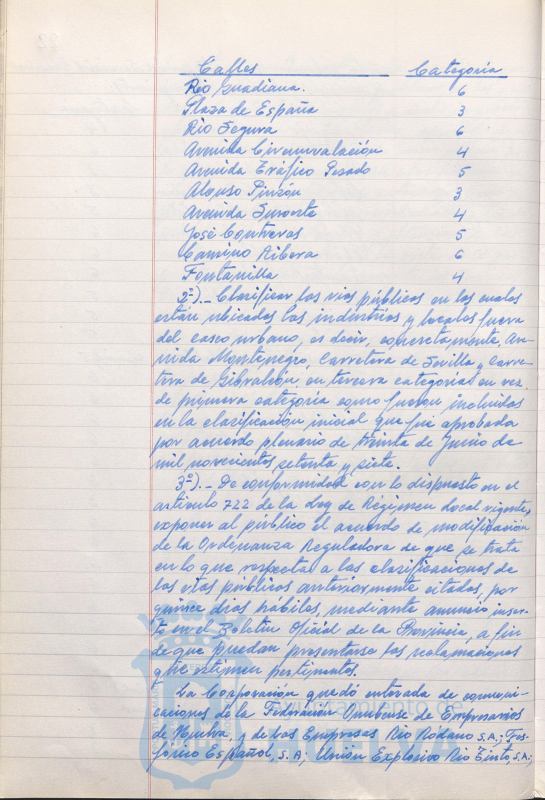 Calles Categoria
Rio Guadiana. 6
Plaza de España 3
Rio Segura 6
Avenida Circunvalación 4
Avenida Tráfico Pesado 5
Alonso Pinzón 3
Avenida Suroeste 4
José Contreras 5
Camino Ribera 6
Fontanilla 4
2º).- Clasificar las vias públicas en las cuales
están ubicadas las industrias y locales fuera
del casco urbano, es decir, concretamente, Ave-
nida Montenegro, Carretera de Sevilla y Carre-
tera de Gibraleón, en tercera categoria en vez
de primera categoria como fueron incluidas
en la clasificación inicial que fue aprobada
por acuerdo plenario de treinta de Junio de
mil novecientos setenta y siete.
3º).- De conformidad con lo dispuesto en el
artículo 722 de la Ley de Régimen Local vigente,
exponer al público el acuerdo de modificación
de la Ordenanza Reguladora de que se trata
en lo que respecta a las clasificaciones de
las vias públicas anteriormente citadas, por
quince dias hábiles, mediante anuncio inser-
to en el Boletin Oficial de la Provincia, a fin
de que puedan presentarse las reclamaciones
que estimen pertinentes.
La Corporación quedó enterada de comuni-
caciones de la Federación Onubense de Empresarios
de Huelva, y de las Empresas Rio Ródano S.A; Fos-
fórico Español, S.A; Unión Explosivo Rio Tinto, S.A;
Ayuntamiento de
HUELVA